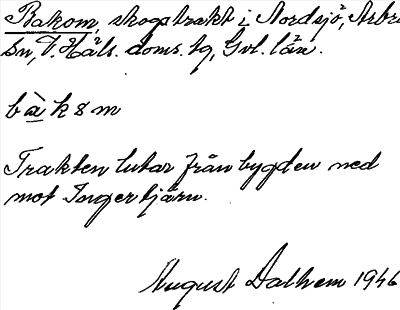 Bakom, skogstrakt i Nordsjö, Arbrå
sn, V. Häls. doms. tg, Gvl. län.
bàk8m
Trakten lutar från bygden ned
mot Ingertjärn.
August Dalhem 1946